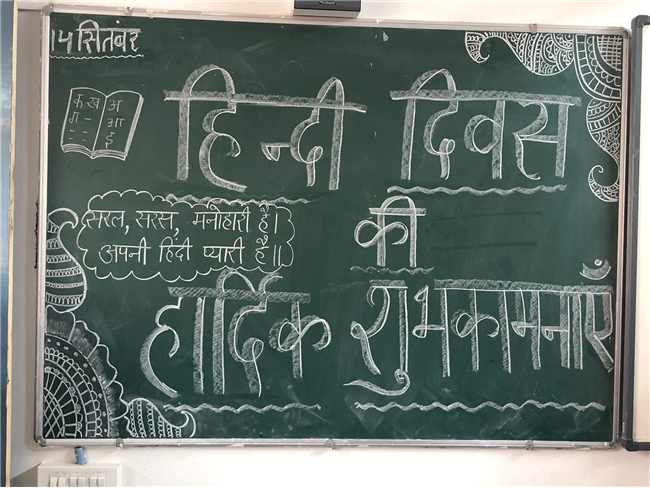 14 सितंबर
हिन्दी दिवस
क ख अ
ग - आ
- - ई
सरल, सरस, मनोहारी है।
अपनी हिंदी प्यारी है॥
की
हार्दिक शुभकामनाएँ